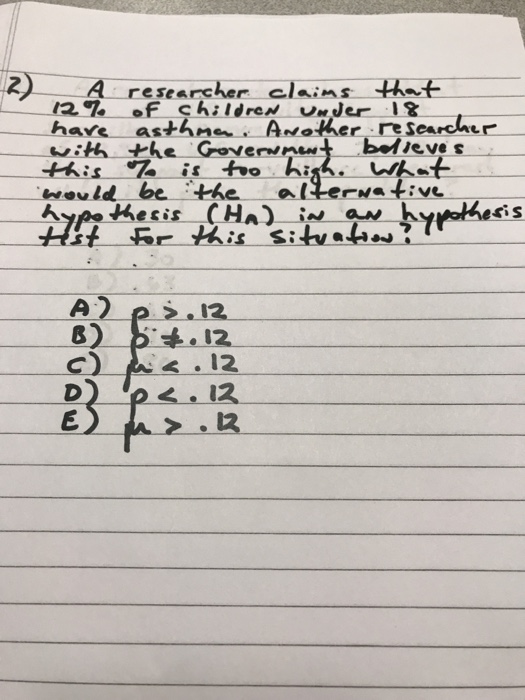 2) A researcher claims that
12% of children under 18
have asthma. Another researcher
with the Government believes
this % is too high. What
would be the alternative
hypothesis (HA) in an hypothesis
test for this situation?
A) p > .12
B) p ≠ .12
C) μ < .12
D) p < .12
E) μ > .12